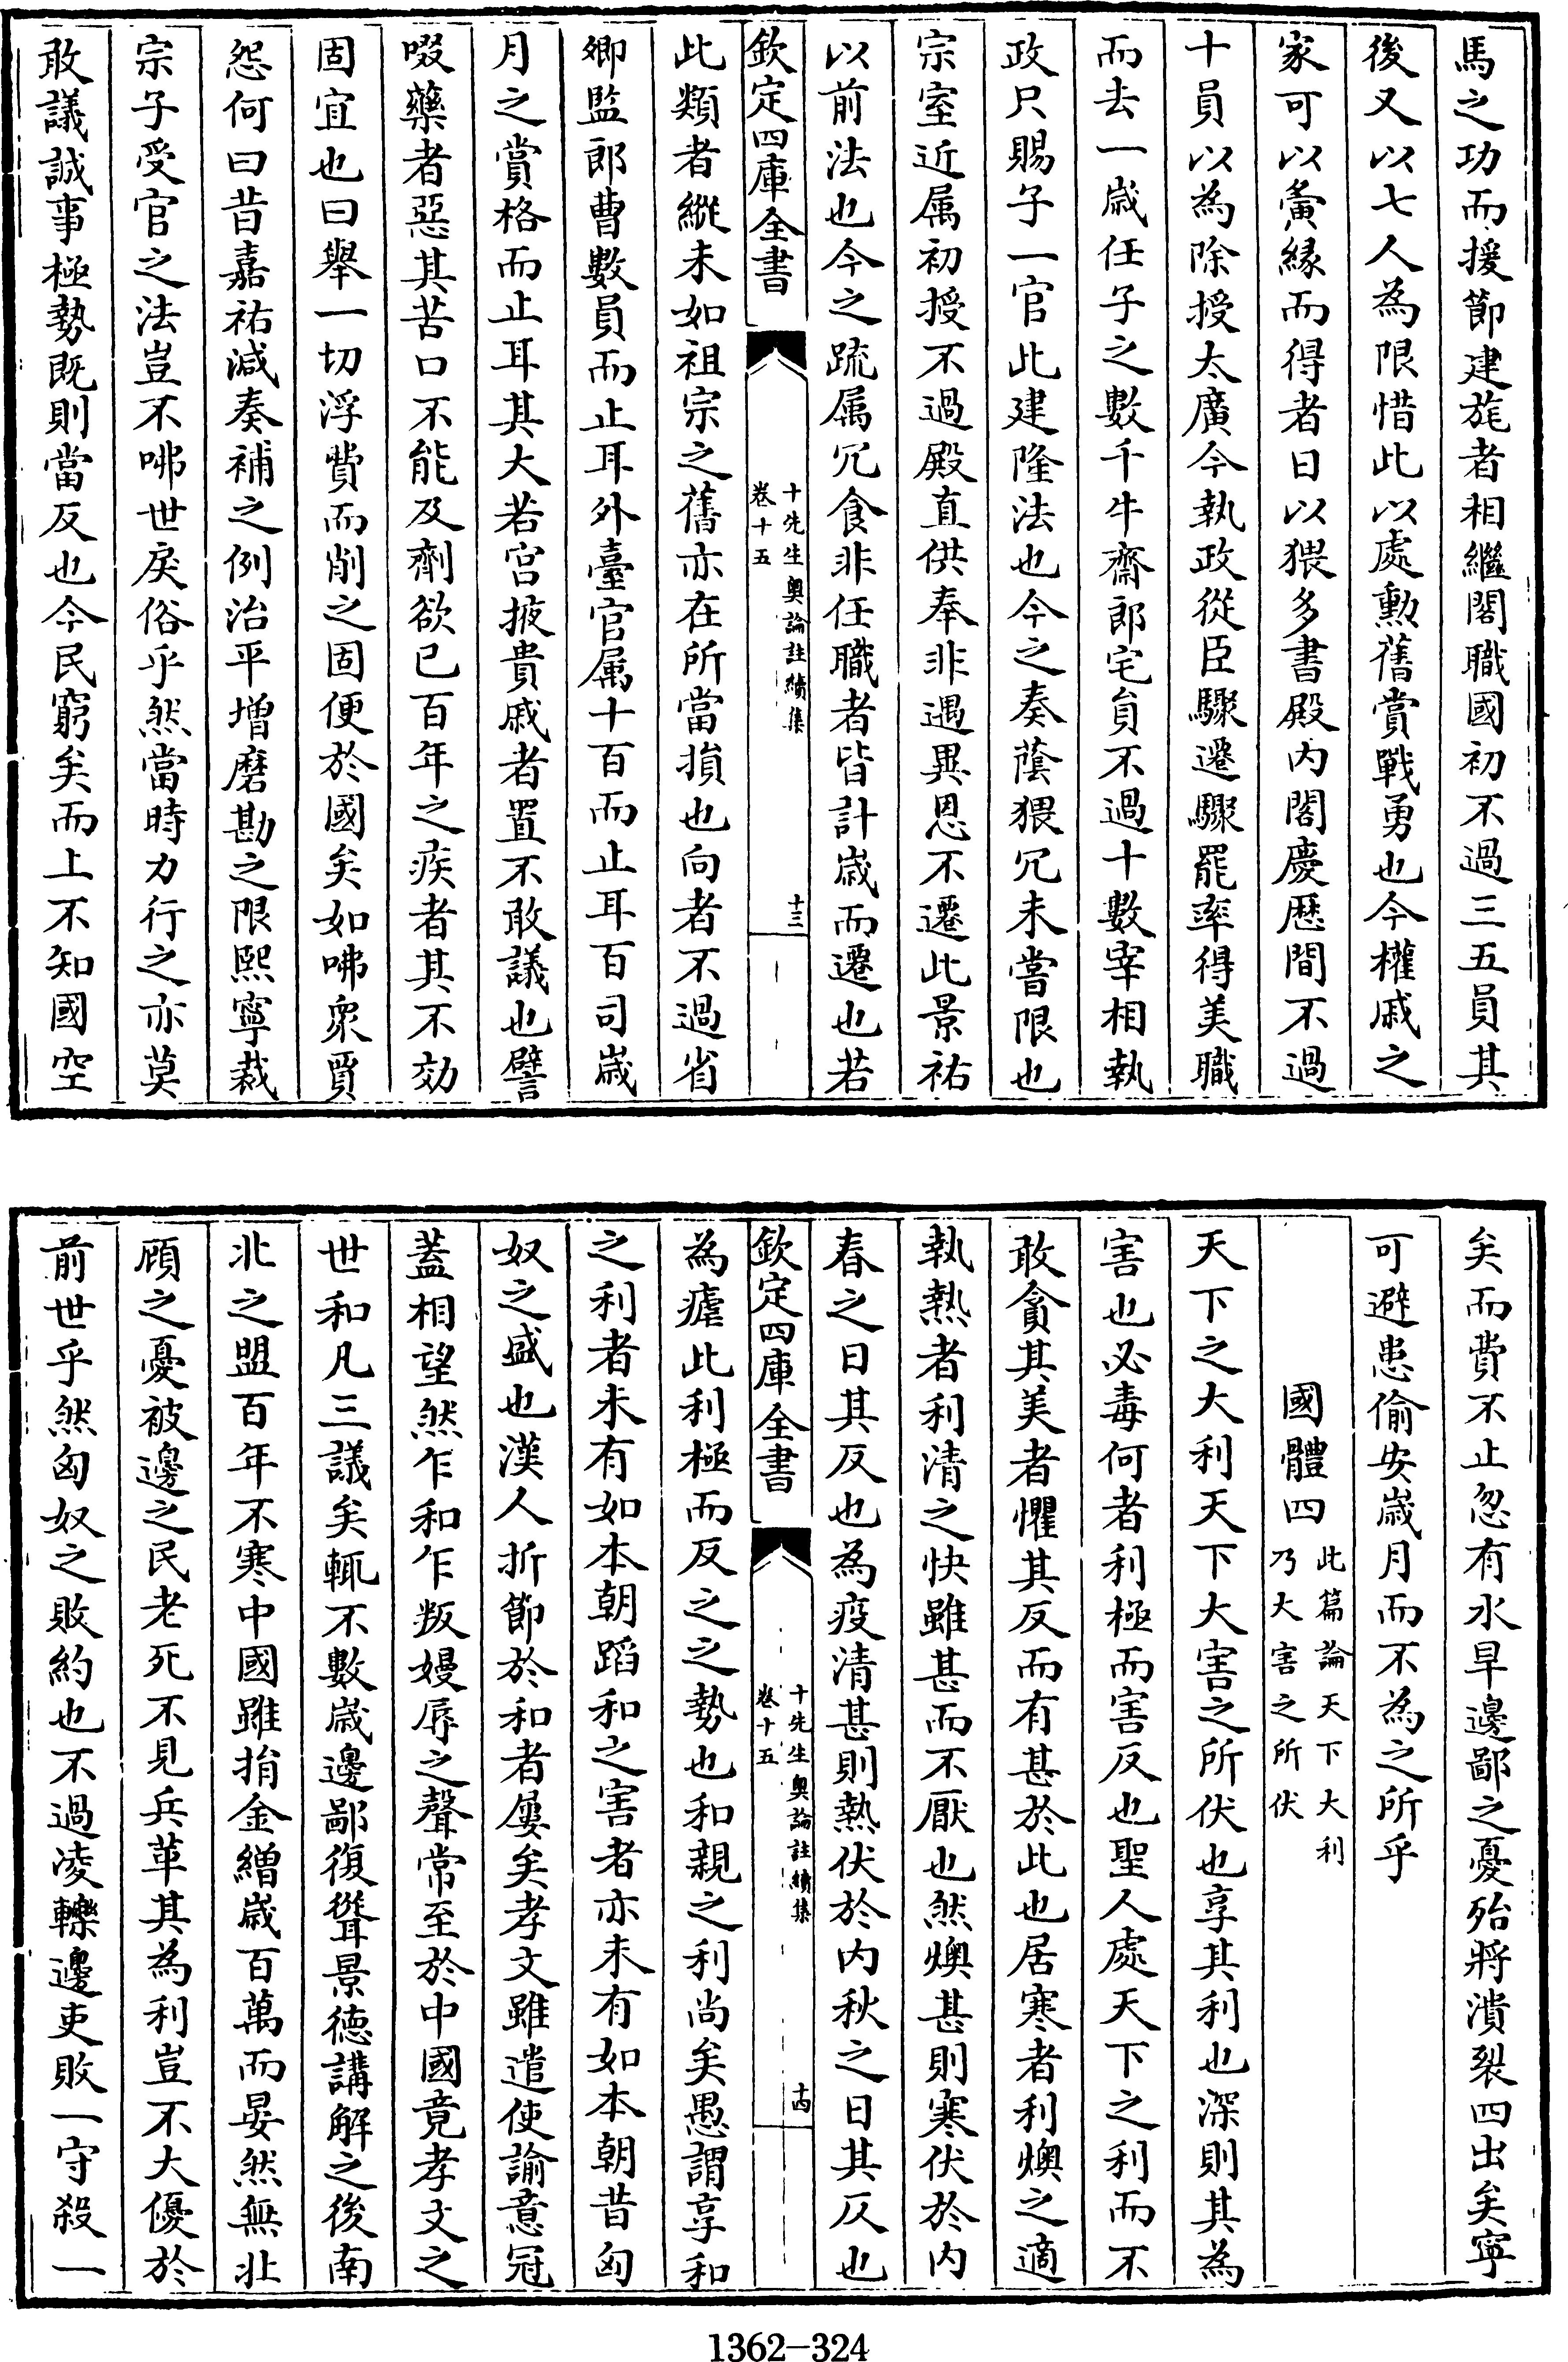 馬之功而援節建旄者相繼閣職國初不過三五員其
後又以七人為限惜此以處勲舊賞戰勇也今權戚之
家可以夤緣而得者日以猥多書殿内閣慶厯間不過
十員以為除授太廣今執政從臣驟遷驟罷率得美職
而去一歳任子之數千牛齋郎宅貟不過十數宰相執
政只賜子一官此建隆法也今之奏蔭猥冗未嘗限也
宗室近属初授不過殿直供奉非遇異恩不遷此景祐
以前法也今之疏属冗食非任職者皆計歳而遷也若
欽定四庫全書
十先生奥論註續集
卷十五
十三
此類者縱未如祖宗之舊亦在所當損也向者不過省
卿監郎曹數員而止耳外臺官属十百而止耳百司歳
月之賞格而止耳其大若宫掖貴戚者置不敢議也譬
啜藥者惡其苦口不能及劑欲已百年之疾者其不効
固宜也曰舉一切浮費而削之固便於國矣如咈衆賈
怨何曰昔嘉祐減奏補之例治平增磨勘之限熙寧裁
宗子受官之法豈不咈世戾俗乎然當時力行之亦莫
敢議誠事極勢既則當反也今民窮矣而上不知國空
矣而費不止忽有水旱邊鄙之憂殆將潰裂四出矣寧
可避患偷安歳月而不為之所乎
國體四
此篇論天下大利
乃大害之所伏
天下之大利天下大害之所伏也享其利也深則其為
害也必毒何者利極而害反也聖人處天下之利而不
敢貪其美者懼其反而有甚於此也居寒者利燠之適
執熱者利清之快雖甚而不厭也然燠甚則寒伏於内
春之日其反也為疫清甚則熱伏於内秋之日其仄也
欽定四庫全書
十先生奥論註續集
卷十五
十四
為瘧此利極而反之之勢也和親之利尚矣愚謂享和
之利者未有如本朝蹈和之害者亦未有如本朝昔匈
奴之盛也漢人折節於和者屢矣孝文雖遣使諭意冠
蓋相望然乍和乍叛嫚辱之聲常至於中國竟孝文之
世和凡三議矣輒不數歳邊鄙復聳景德講解之後南
北之盟百年不寒中國雖捐金繒歳百萬而晏然無北
顧之憂被邊之民老死不見兵革其為利豈不大優於
前世乎然匈奴之敗約也不過凌轢邊吏敗一守殺一
1362-324